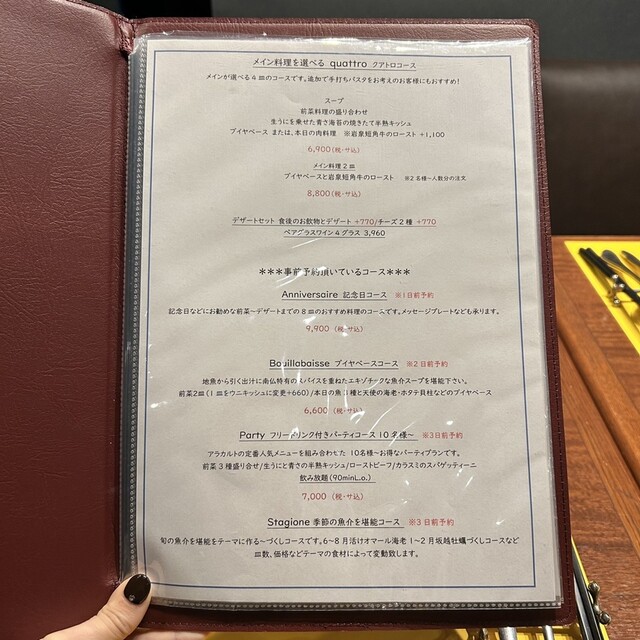 メイン料理を選べる quattro クアトロコース
メインが選べる4皿のコースです。追加で手打ちパスタをお考えのお客様にもおすすめ!
スープ
前菜料理の盛り合わせ
生うにを乗せた青さ海苔の焼きたて半熟キッシュ
ブイヤベース または、本日の肉料理 ※岩泉短角牛のロースト +1,100
6,900(税・サ込)
メイン料理2皿
ブイヤベースと岩泉短角牛のロースト ※2名様~人数分の注文
8,800(税・サ込)
デザートセット 食後のお飲物とデザート +770/チーズ2種 +770
ペアグラスワイン4グラス 3,960
***事前予約頂いているコース***
Anniversaire 記念日コース ※1日前予約
記念日などにお勧めな前菜~デザートまでの8皿のおすすめ料理のコースです。メッセージプレートなども承ります。
9,900(税・サ込)
Bouillabaisse ブイヤベースコース ※2日前予約
地魚から引く出汁に南仏特有のスパイスを重ねたエキゾチックな魚介スープを堪能下さい。
前菜2皿(1皿をウニキッシュに変更+660)/本日の魚3種と天使の海老・ホタテ貝柱などのブイヤベース
6,600(税・サ込)
Party フリードリンク付きパーティコース 10名様~ ※3日前予約
アラカルトの定番人気メニューを組み合わせた 10名様~お得なパーティプランです。
前菜3種盛り合せ/生うにと青さの半熟キッシュ/ローストビーフ/カラスミのスパゲッティーニ
飲み放題(90minL.o.)
7,000(税・サ込)
Stagione 季節の魚介を堪能コース ※3日前予約
旬の魚介を堪能をテーマに作る~づくしコースです。6~8月活けオマール海老 1~2月坂越牡蠣づくしコースなど
皿数、価格などテーマの食材によって変動致します。